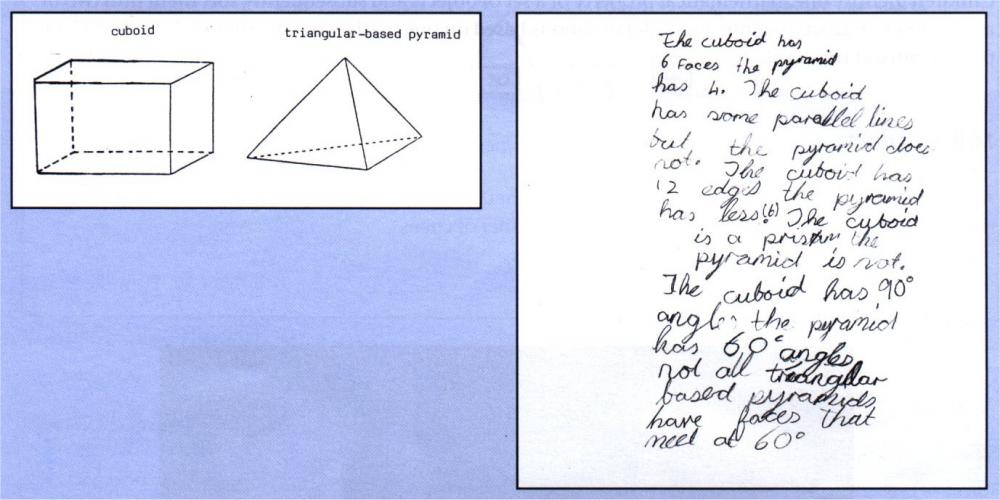 cuboid
triangular-based pyramid
The cuboid has
6 faces the pyramid
has 4. The cuboid
has some parallel lines
but the pyramid does
not. The cuboid has
12 edges the pyramid
has less! (6) The cuboid
is a prism the
pyramid is not.
The cuboid has 90°
angles the pyramid
has 60° angles
not all triangular
based pyramids
have faces that
meet at 60°